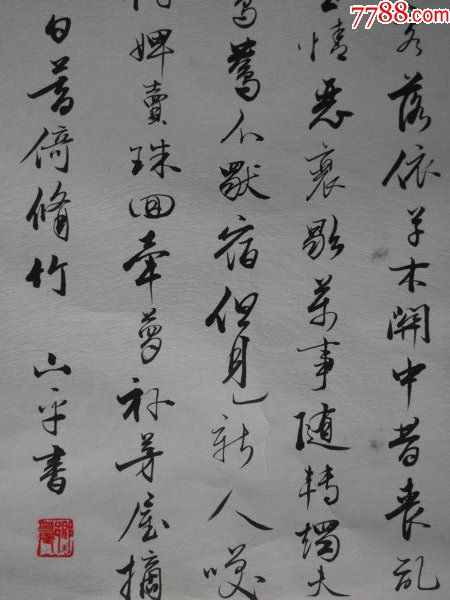 7788.com
中国收藏热线
落依草木關中昔喪乱
情惡衰歇萬事隨轉燭夫
鴦不獨宿但見新人咲
婢賣珠回牽蘿補茅屋摘
日暮倚脩竹
山平書